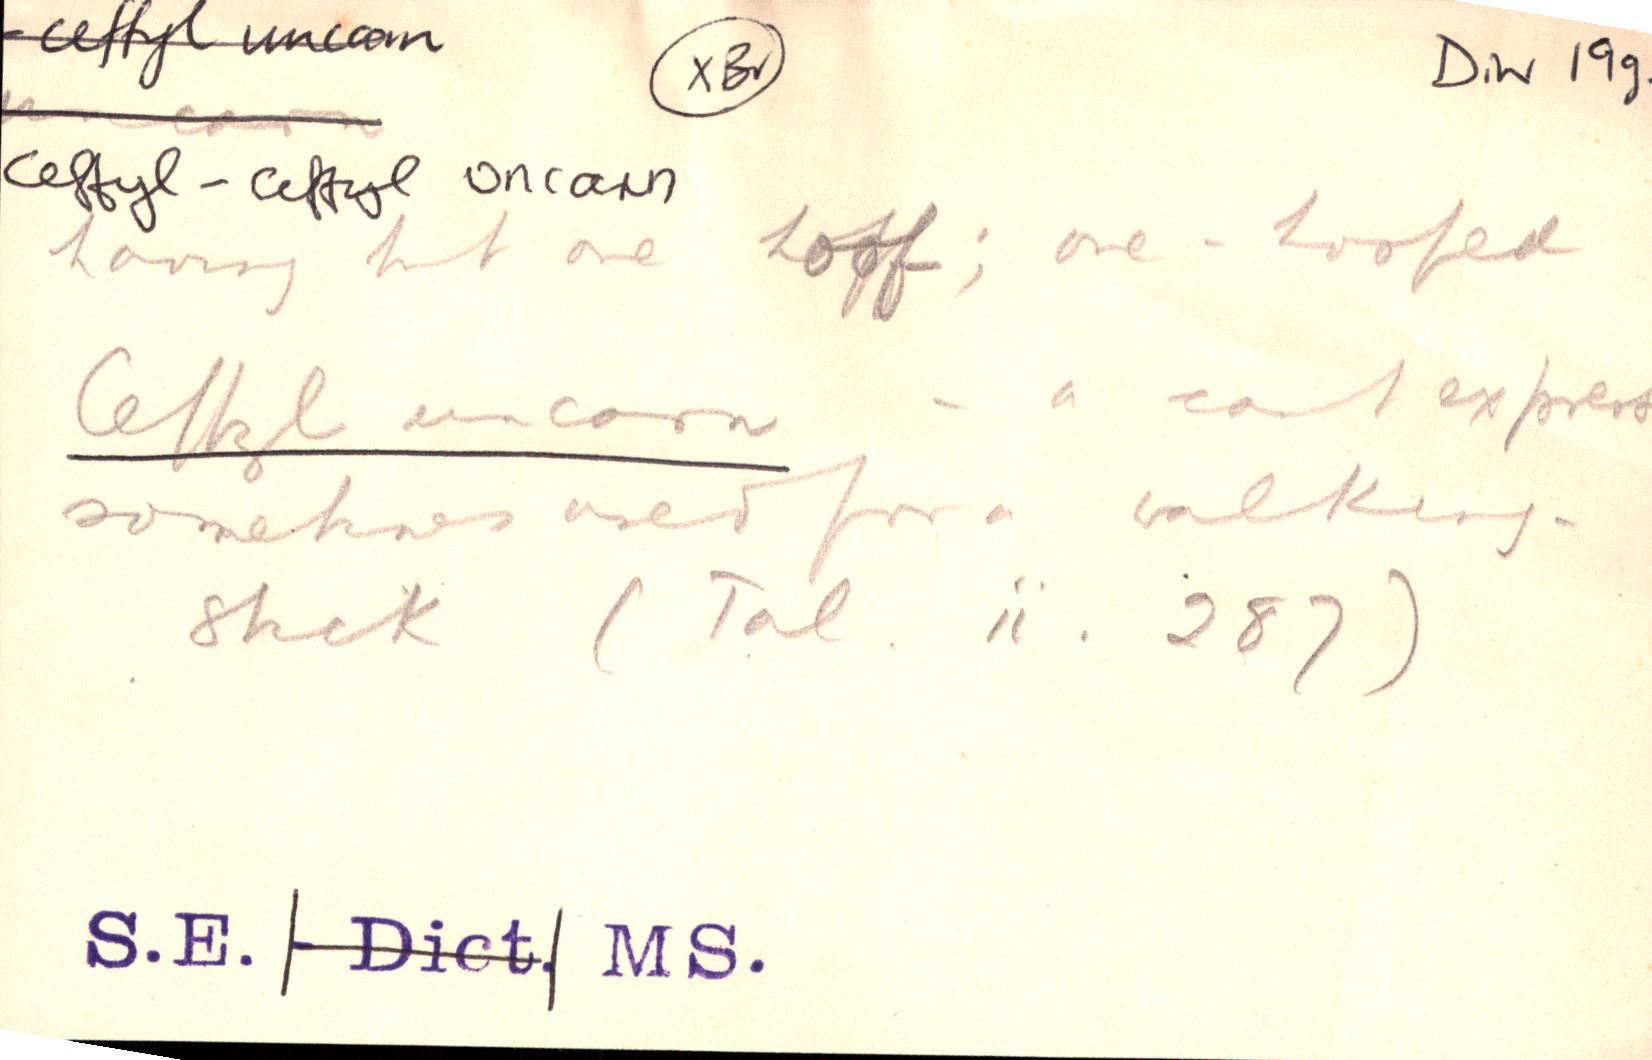 -ceffyl uncarn
XBr
Diw 19g.
uncarn
ceffyl - ceffyl uncarn
having but one hoof; one-hoofed
Ceffyl uncarn - a cant express
sometimes used for a walking-
stick (Tal. ii. 287)
S.E. - Dict. MS.